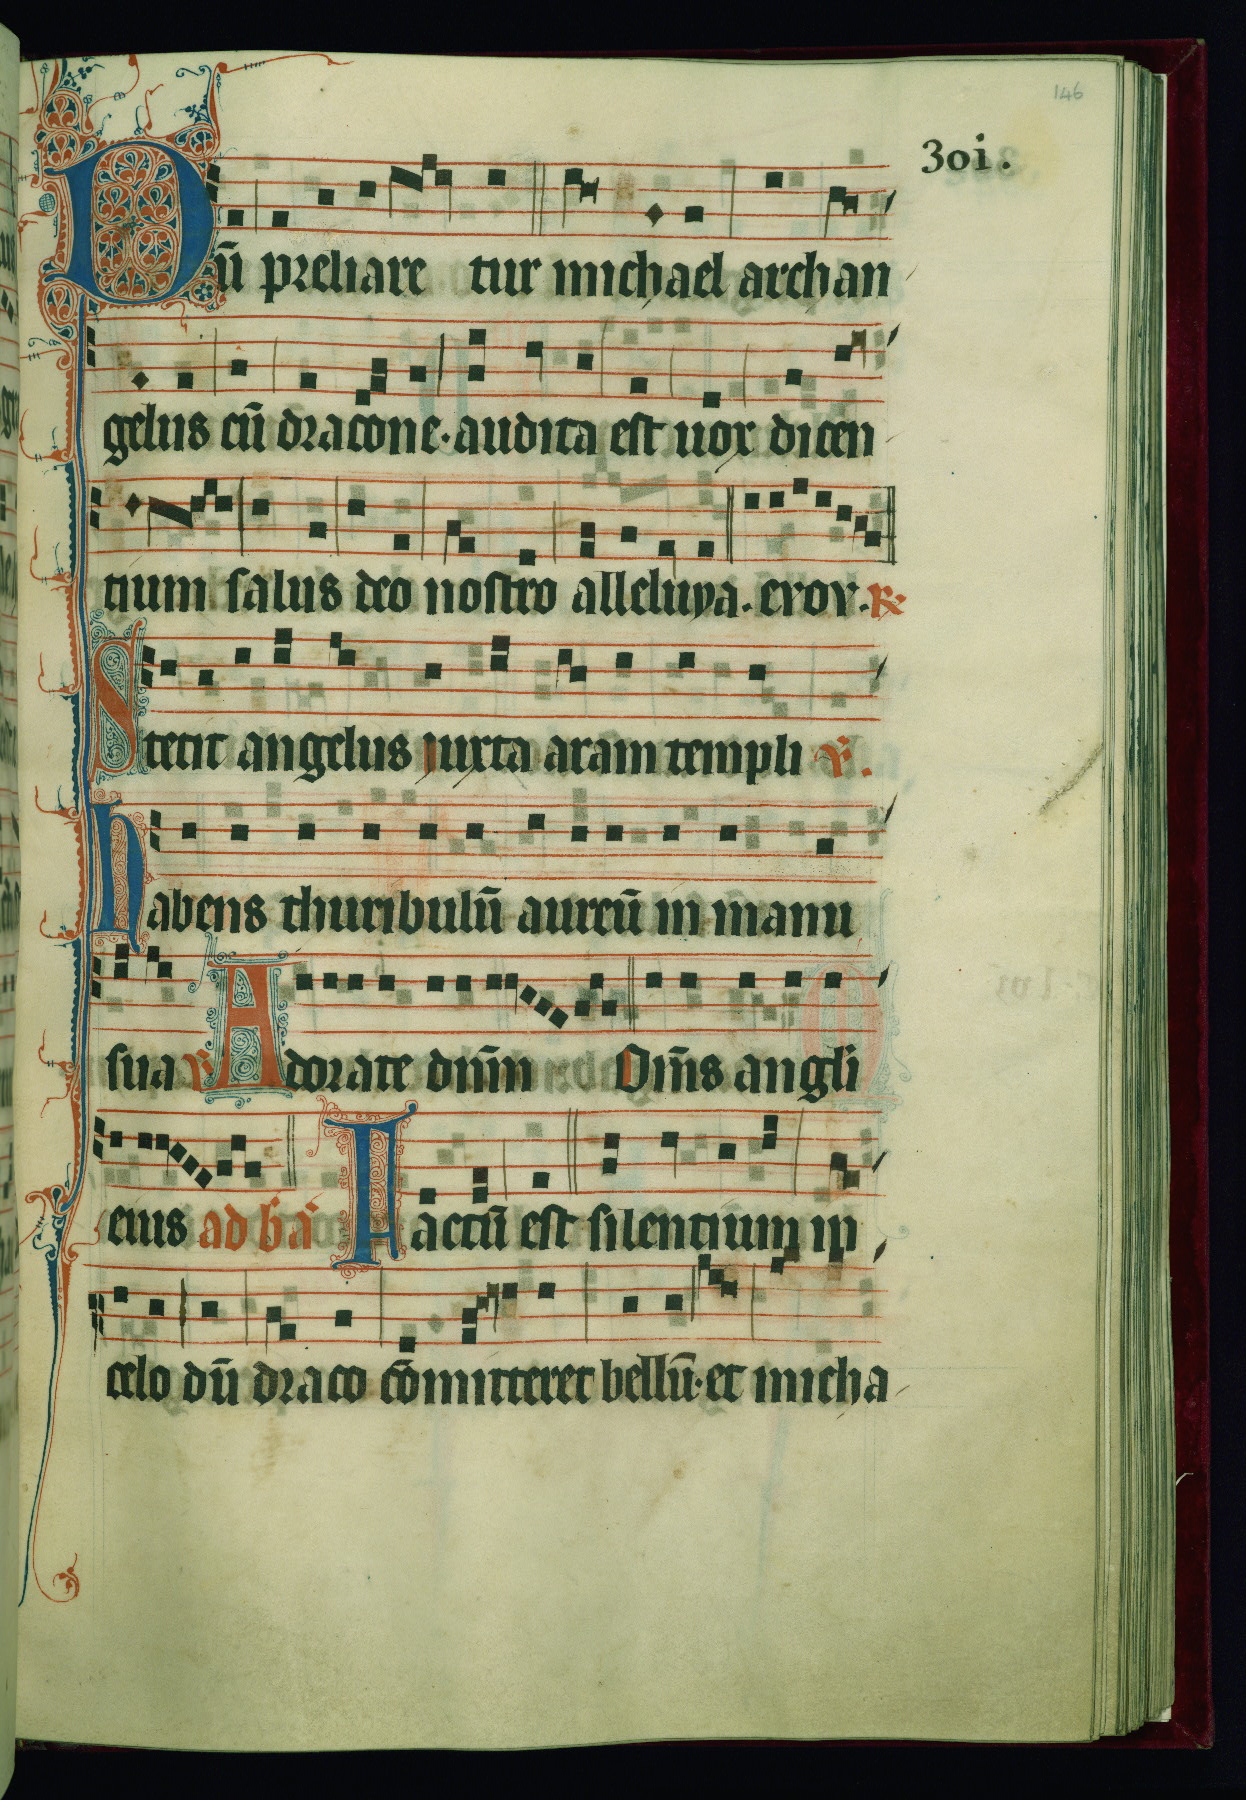 146
301.
Dū preliare tur michael archan
gelus cū dracone. audita est uox dicen
tium salus deo nostro alleluya. evov. ℟
Stetit angelus iuxta aram templi ℣.
habens thuribulū aureū in manu
sua ℣ Adorate dnm̄ Om̄s angli
eius ad b̄a Factū est silentium in
celo dū draco cōmitteret bellū. et micha